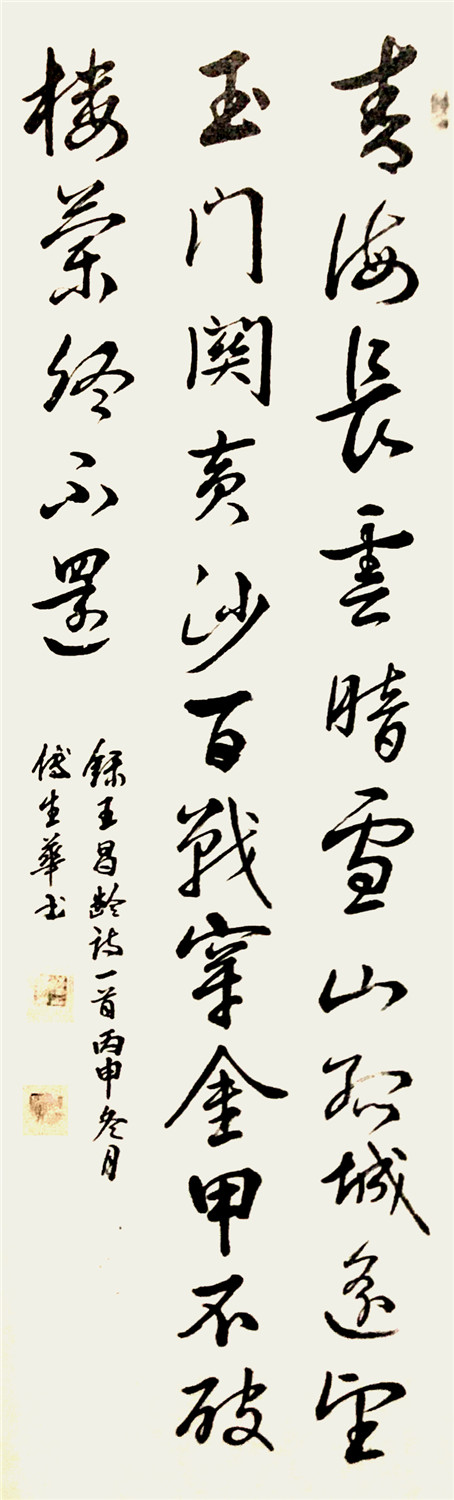 青海長雲暗雪山孤城遥望
玉门関黄沙百戰穿金甲不破
楼蘭终不還
録王昌龄诗一首丙申冬月
傅生華书